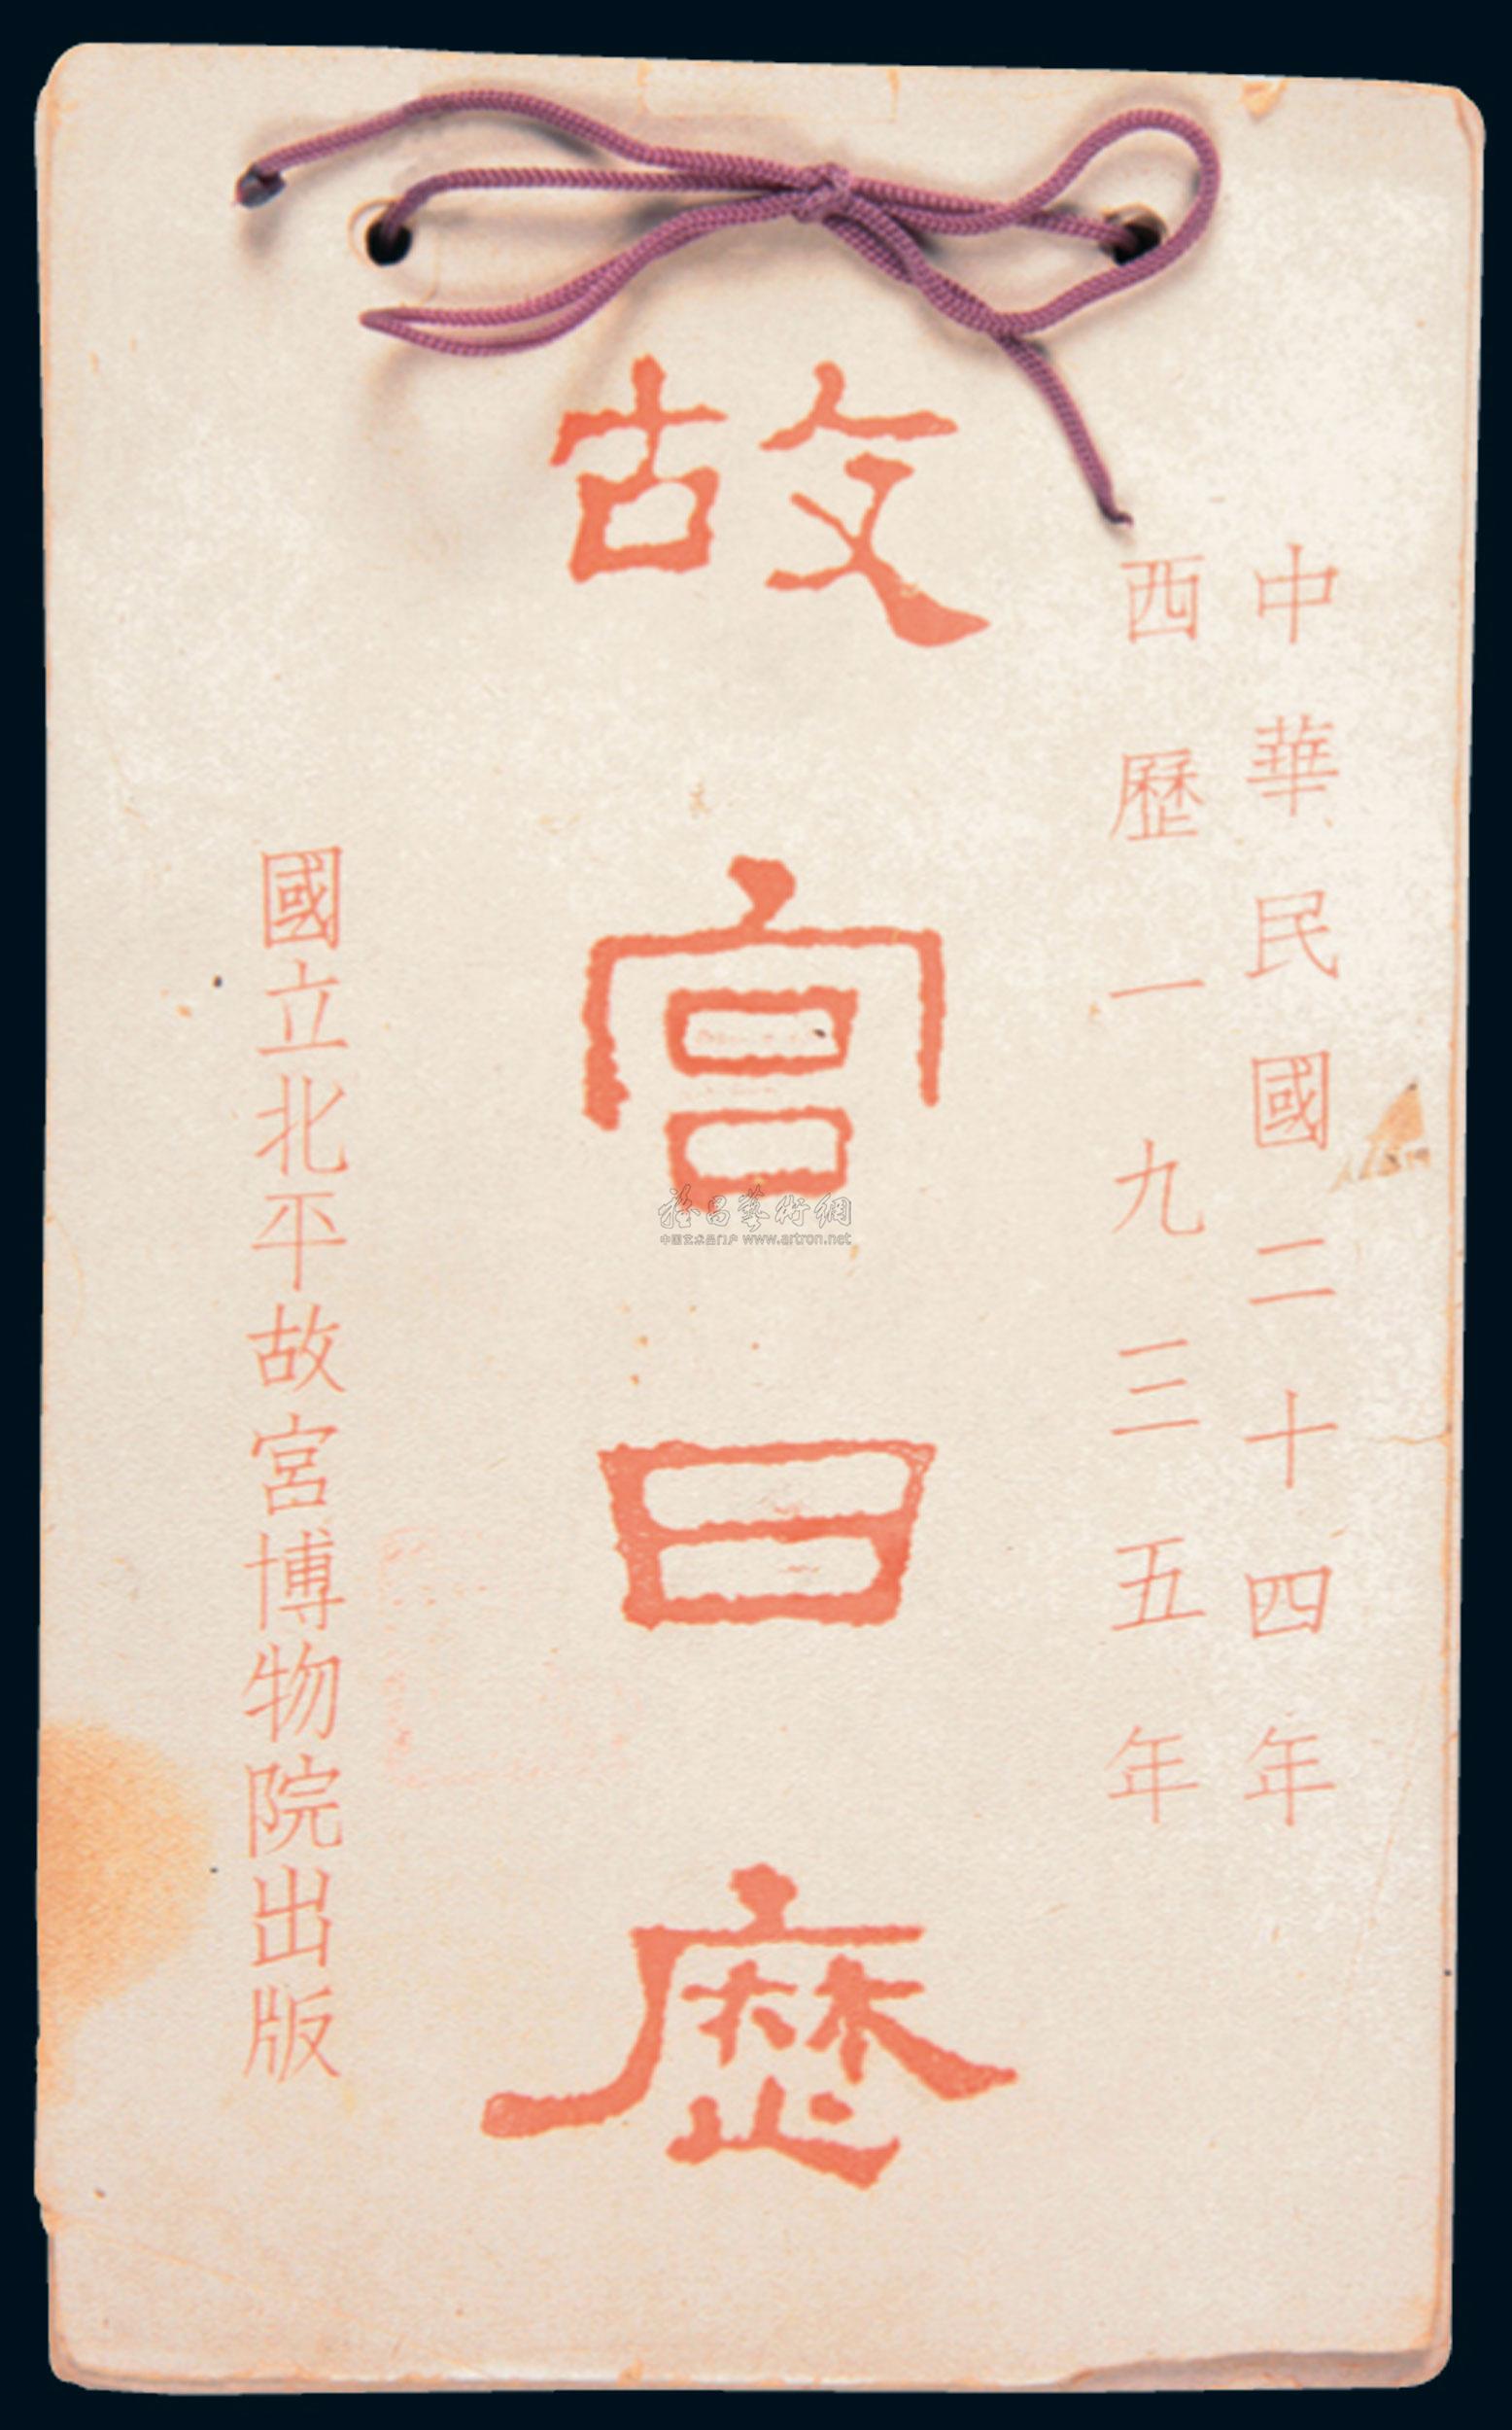 中華民國二十四年
西歷一九三五年
故宮日歷
國立北平故宮博物院出版
雅昌藝術網
中国艺术品门户 www.artron.net